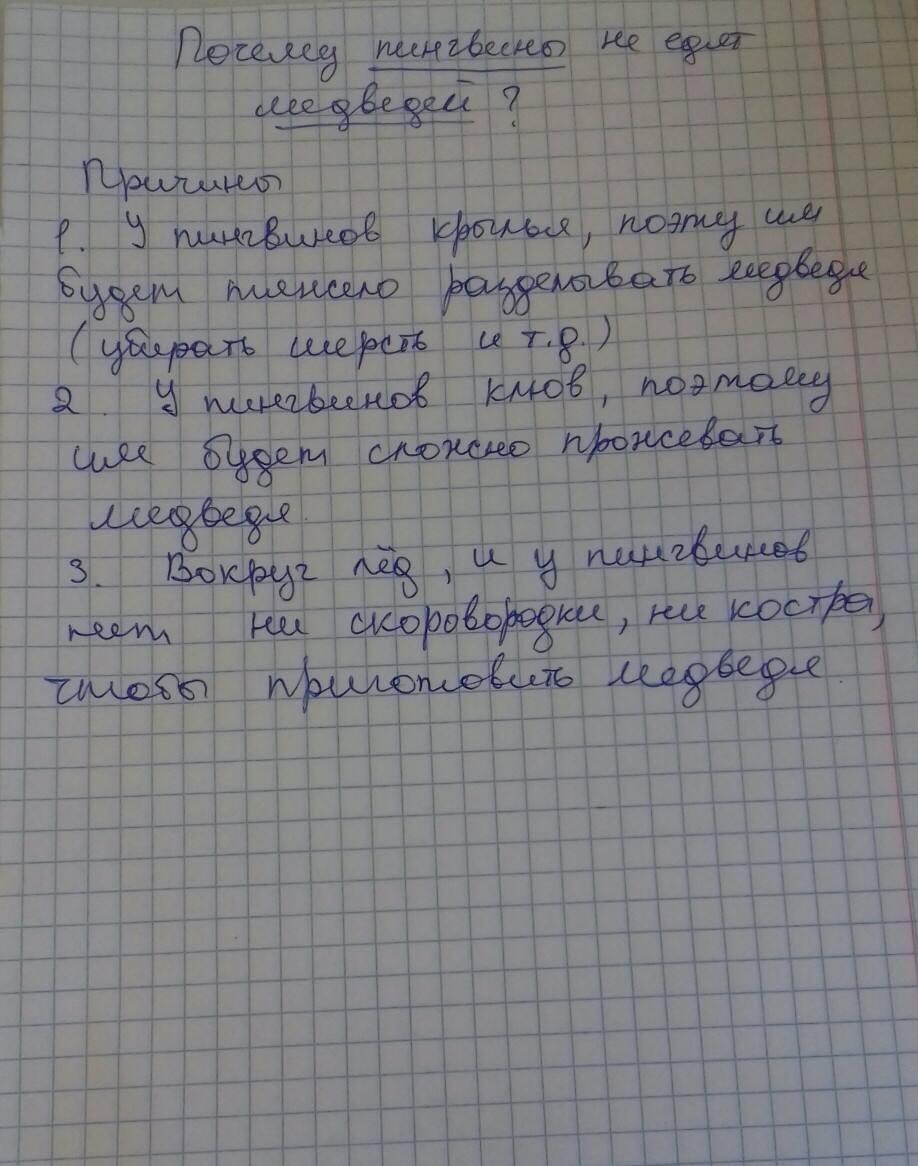 Почему пингвины не едят
медведей ?
Причины
1. У пингвинов крылья, поэту им
будет тяжело разделывать медведя
(убирать шерсть и т.д.)
2. У пингвинов клюв, поэтому
им будет сложно прожевать
медведя.
3. Вокруг лёд, и у пингвинов
нет ни скоровородки, ни костра,
чтобы приготовить медведя.